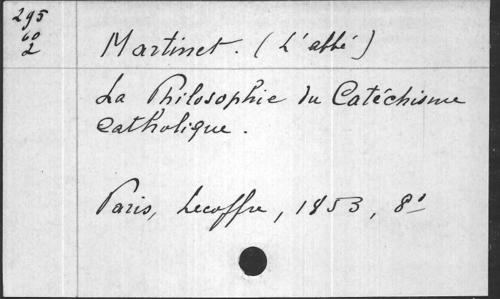 295
60
2
Martinet. (L'abbé)
La Philosophie du Catéchisme
Catholique.
Paris, Lecoffre, 1853, 8°